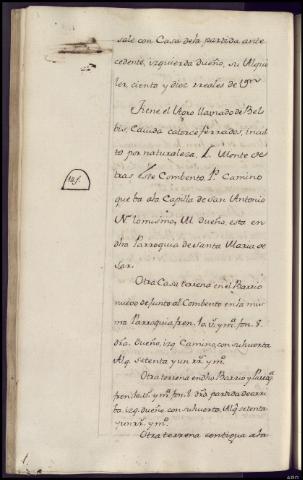 sale con Casa dela partida ante
cedente, izquierda dueño, su Alqui
ler, ciento y diez rreales de
Tiene el llamado de Bel
bis, Cavida catorce ferrados, incul
to por naturaleza, L. Monte de
tras este Combento P. Camino
que ba ala Capilla de san Antonio
N. lo mismo, M. dueño, esta en
dha Parroquia de santa Maria de
Sar.
Otra Casa terrena en el Barrio
nuevo de junto al Combento en la mis
ma Parroquia fren. 10. vs. y ma. fon. 8.
dra. dueño, izq. Camino, con su huerta
Alq. setenta y un rr. y mo.
Otra terrena en dho Barrio y
fren. vs. y ma. fon. dra. partida de arri
ba, izq. dueño con su huerta, Alq. setenta
y un rr. y mo.
Otra terrena contigua ala